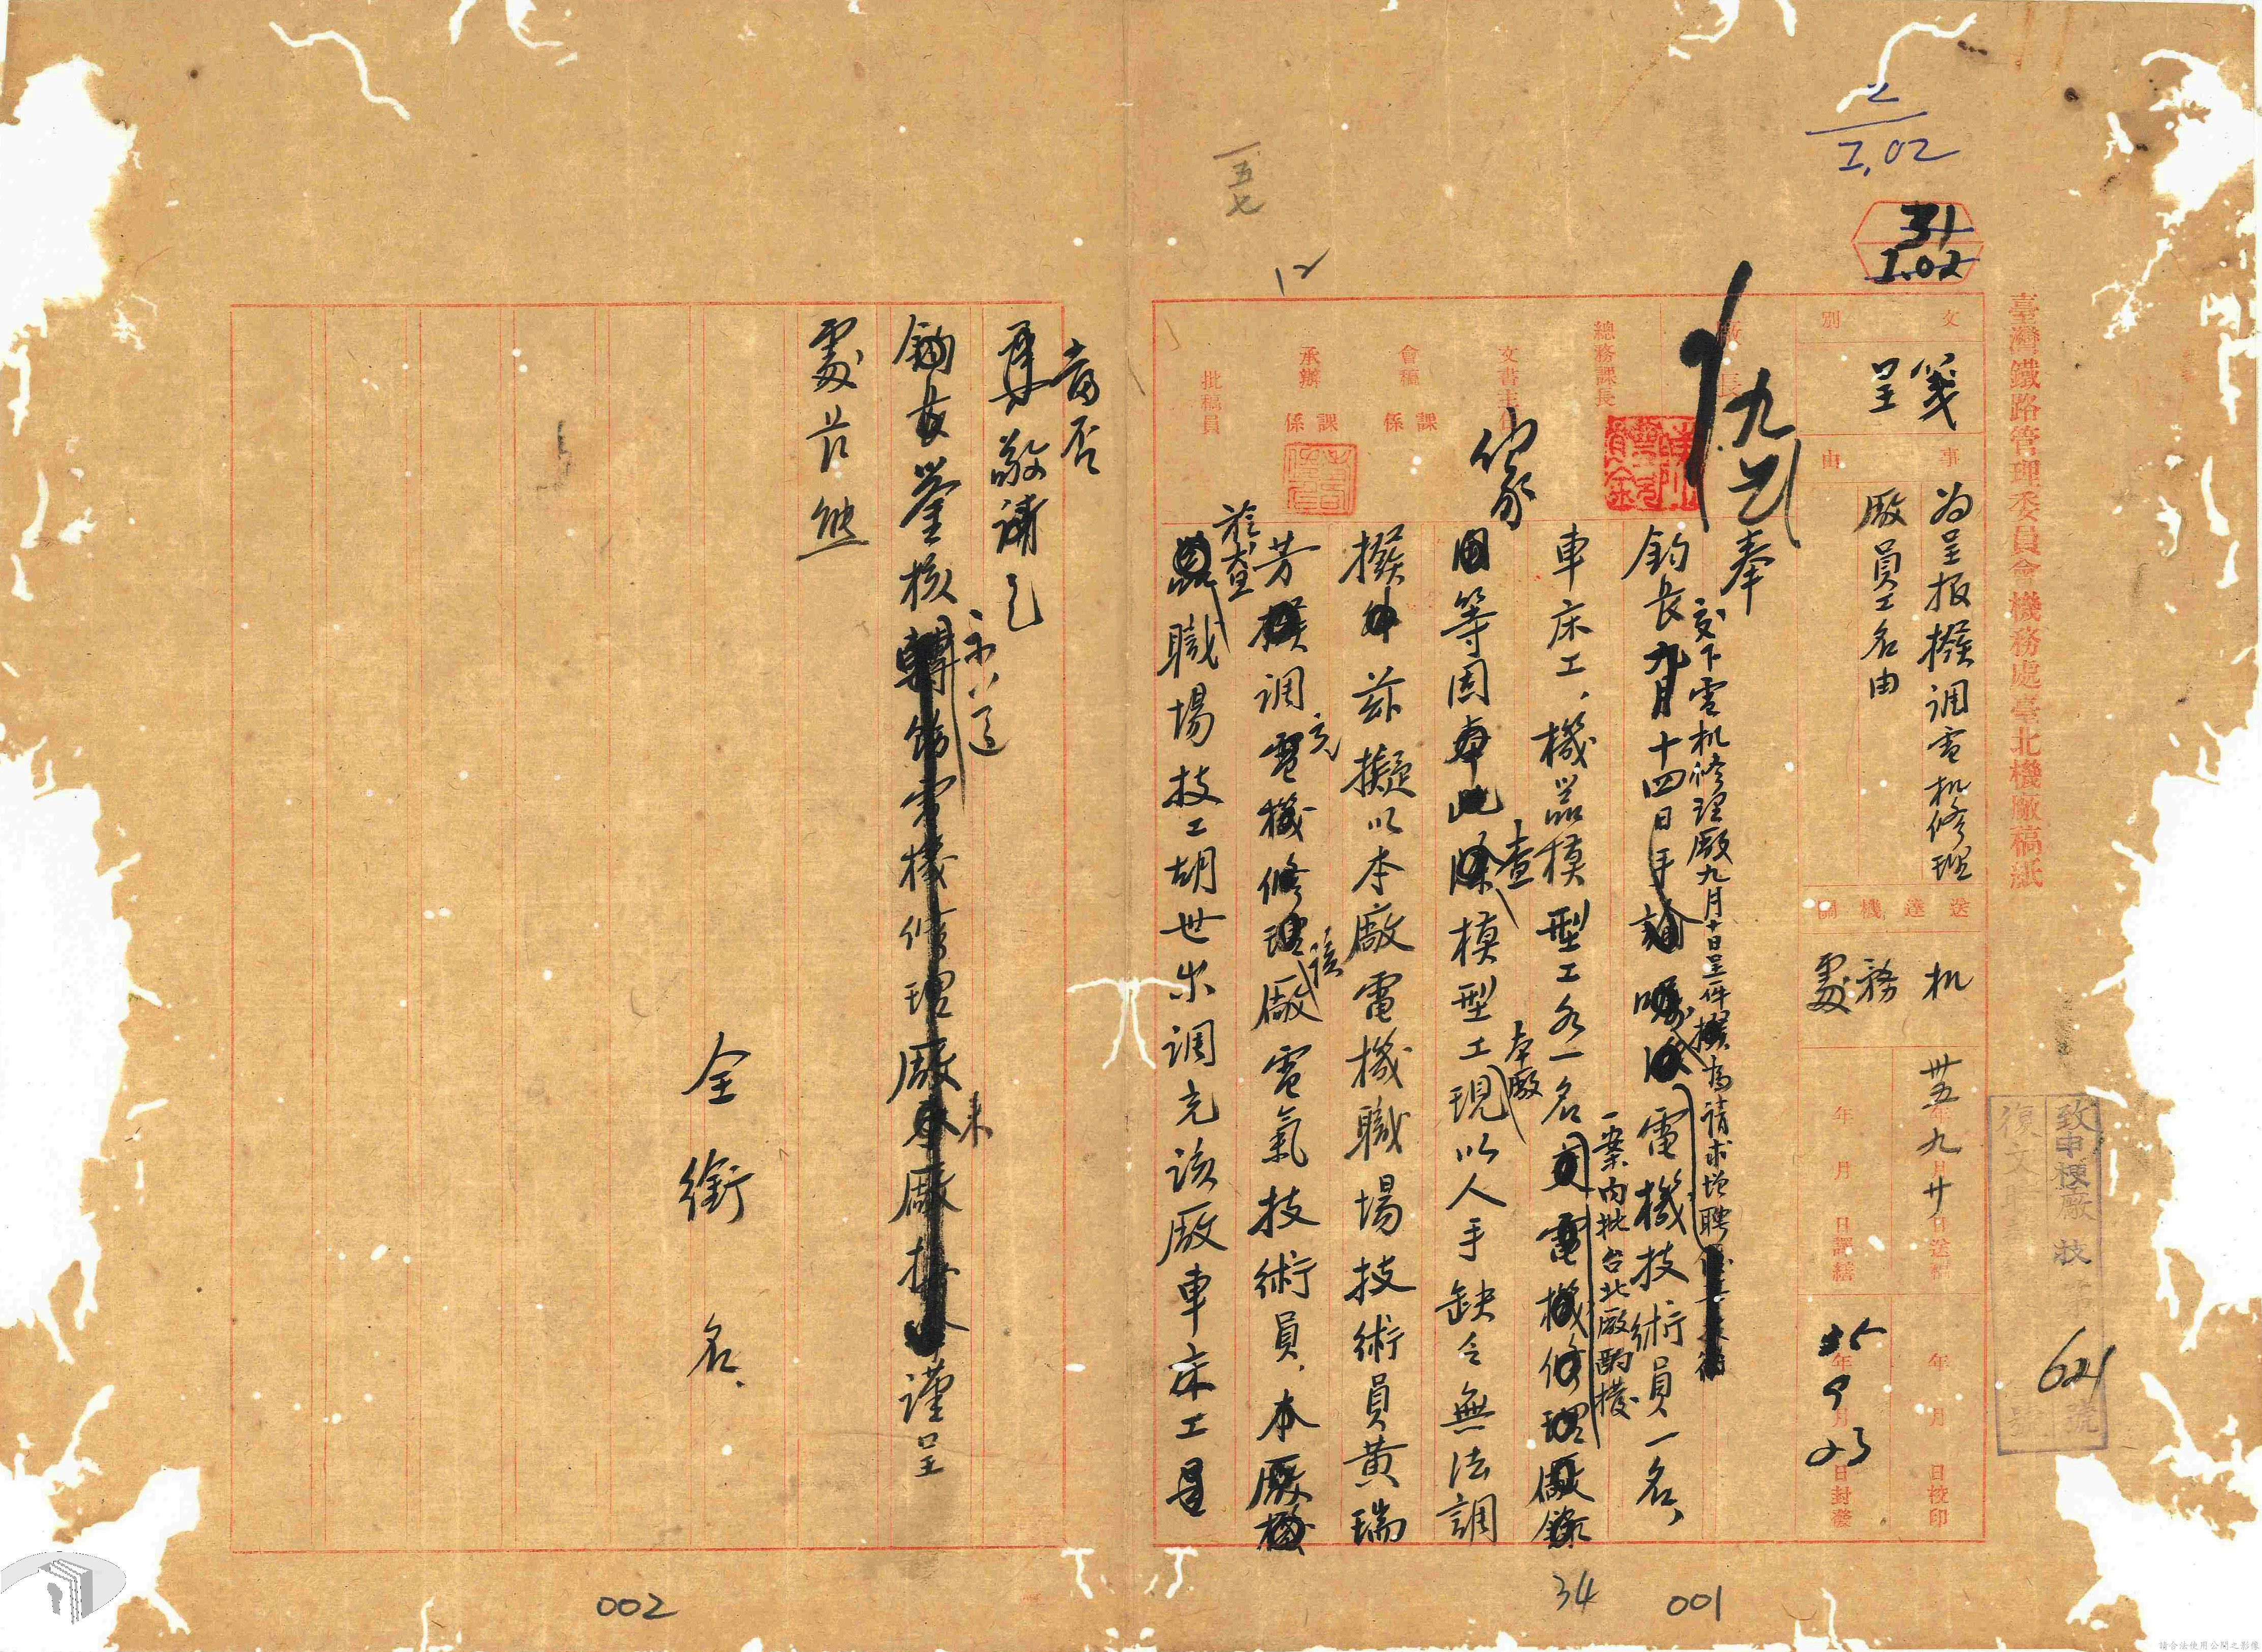 臺灣鐵路管理委員會機務處臺北機廠稿紙
2
I.02
31
I.02
文別
箋呈
事由
為呈报撥调電机修理
廠員工名由
送達機關
机務處
卅五年九月廿日送稿
年月日謄繕
年月日校印
35年9月23日封發
致申梗廠技字第621號
廠長
總務課長
文書主任
會稿 課係
承辦 課係
批稿員
九
家
一五七
12
奉
交下電机修理廠九月十日呈一件為請求增聘
鈞長九月十四日手諭
電機技術員一名、
一案內批台北廠酌撥
車床工、機器模型工各一名
電機修理廠
等因
查
模型工現
本廠
以人手缺乏無法調
撥
茲擬以本廠電機職場技術員黃瑞
芳
调
充
電機修理
該
廠電氣技術員、本廠
職場技工胡世
调充該廠車床工是
當否
敬請
鈞長鑒核
示
轉飭電機修理廠來廠
謹呈
處長熊
全銜名、
34
001
002